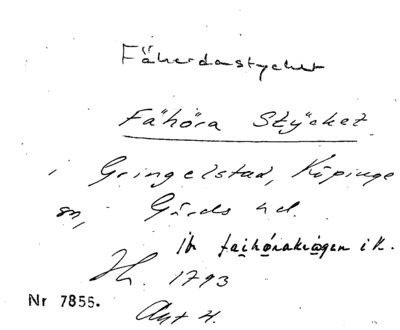 Fäherdastycket
Fähöra Stycket
i Gringelstad, Köpinge
sn, Gärds hd.
Jb faihörakrogen i K.
H. 1793
Nr 7855.
Akt 4.